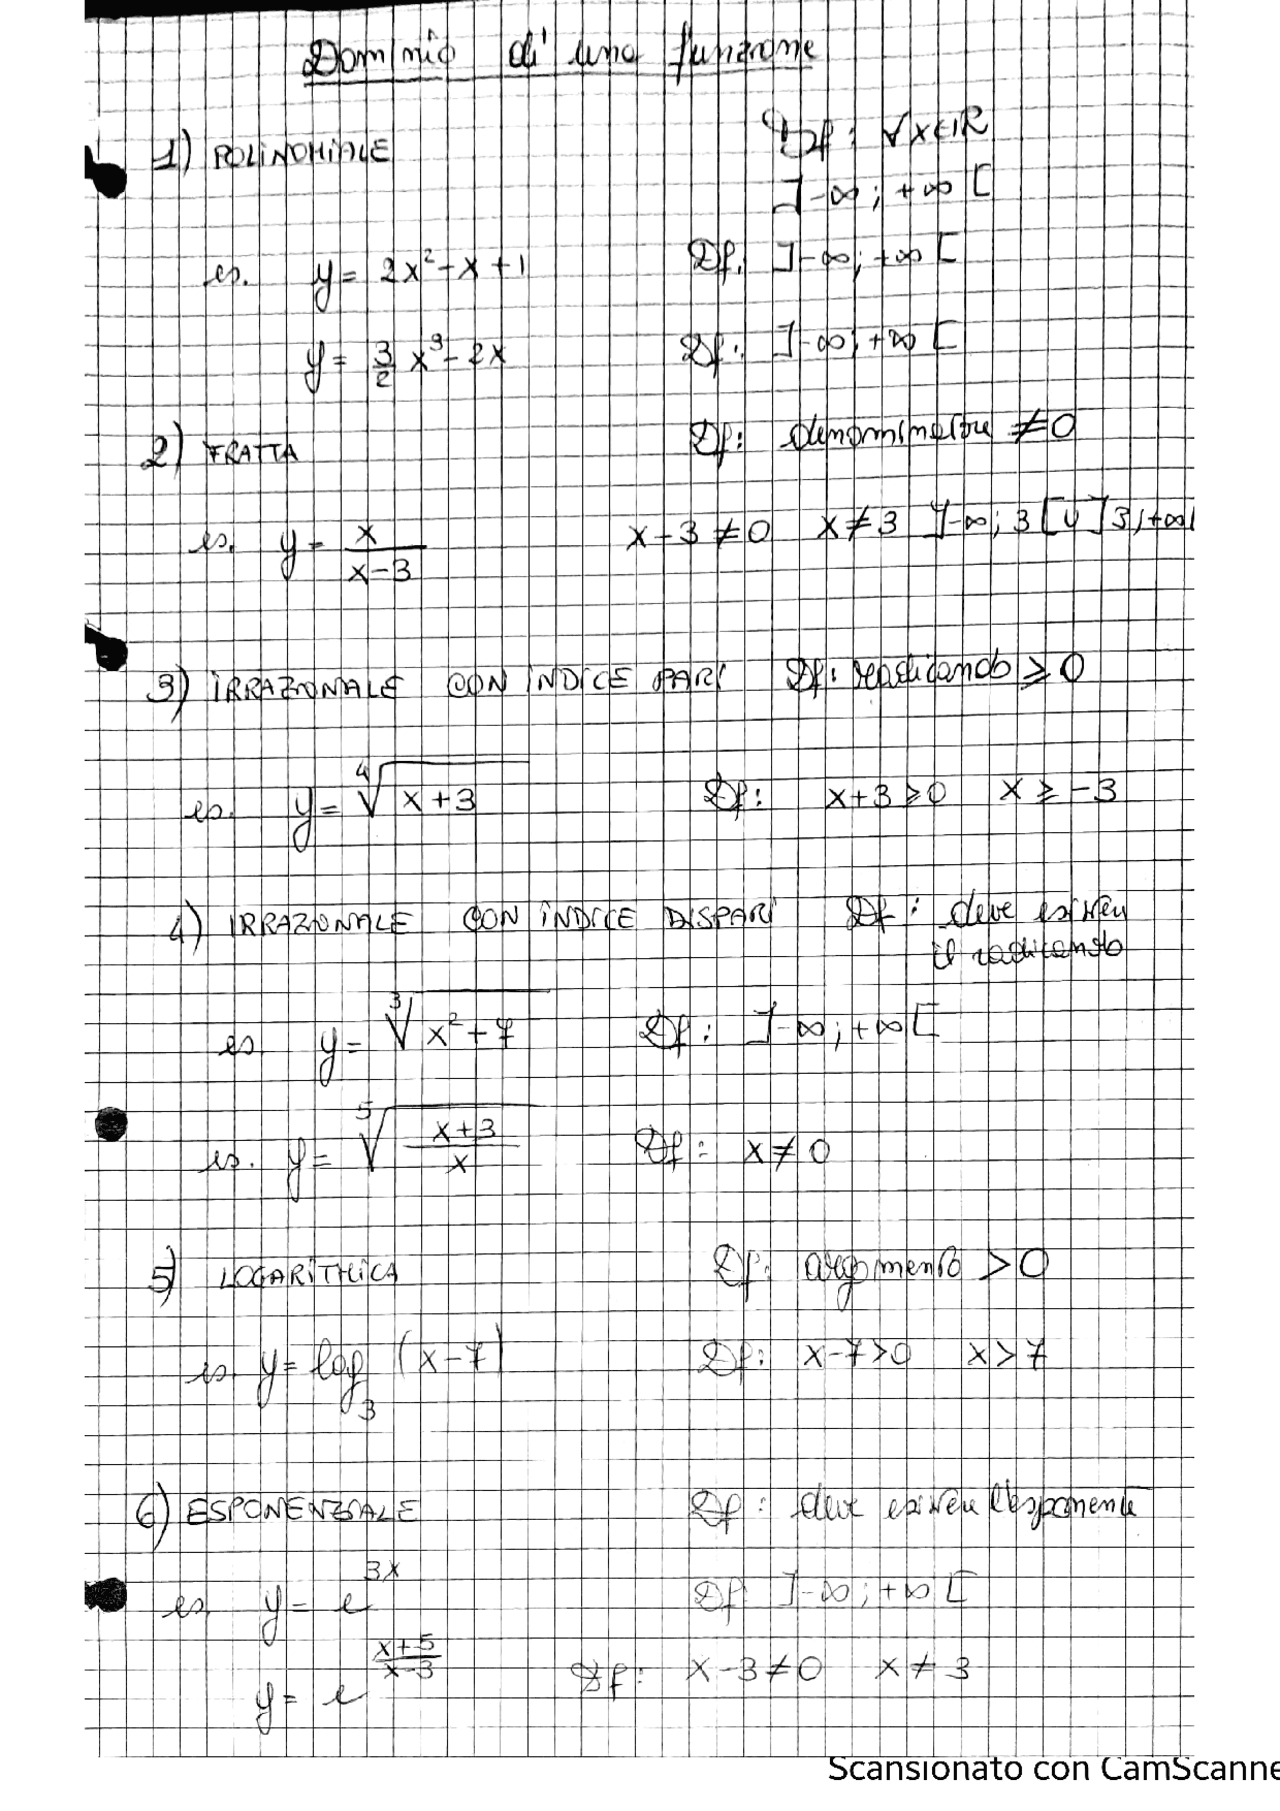 Dominio di una funzione
1) POLINOMIALE Df: ∀x∈ℝ
]-∞; +∞[
es. y = 2x² - x + 1 Df. ]-∞; +∞[
y = 3/2 x³ - 2x Df: ]-∞; +∞[
2) FRATTA Df: denominatore ≠ 0
es. y = x/(x-3) x-3 ≠ 0 x ≠ 3 ]-∞; 3[ U ]3; +∞[
3) IRRAZIONALE CON INDICE PARI Df: radicando ≥ 0
es. y = ⁴√(x+3) Df: x+3 ≥ 0 x ≥ -3
4) IRRAZIONALE CON INDICE DISPARI Df: deve esistere
il radicando
es. y = ³√(x²+7) Df: ]-∞; +∞[
es. y = ⁵√((x+3)/x) Df: x ≠ 0
5) LOGARITMICA Df: argomento > 0
es. y = log₃ (x-7) Df: x-7>0 x>7
6) ESPONENZIALE Df: deve esistere l'esponente
es. y = e^(3x) Df ]-∞; +∞[
y = e^((x+5)/(x-3)) Df: x-3 ≠ 0 x ≠ 3
Scansionato con CamScanne